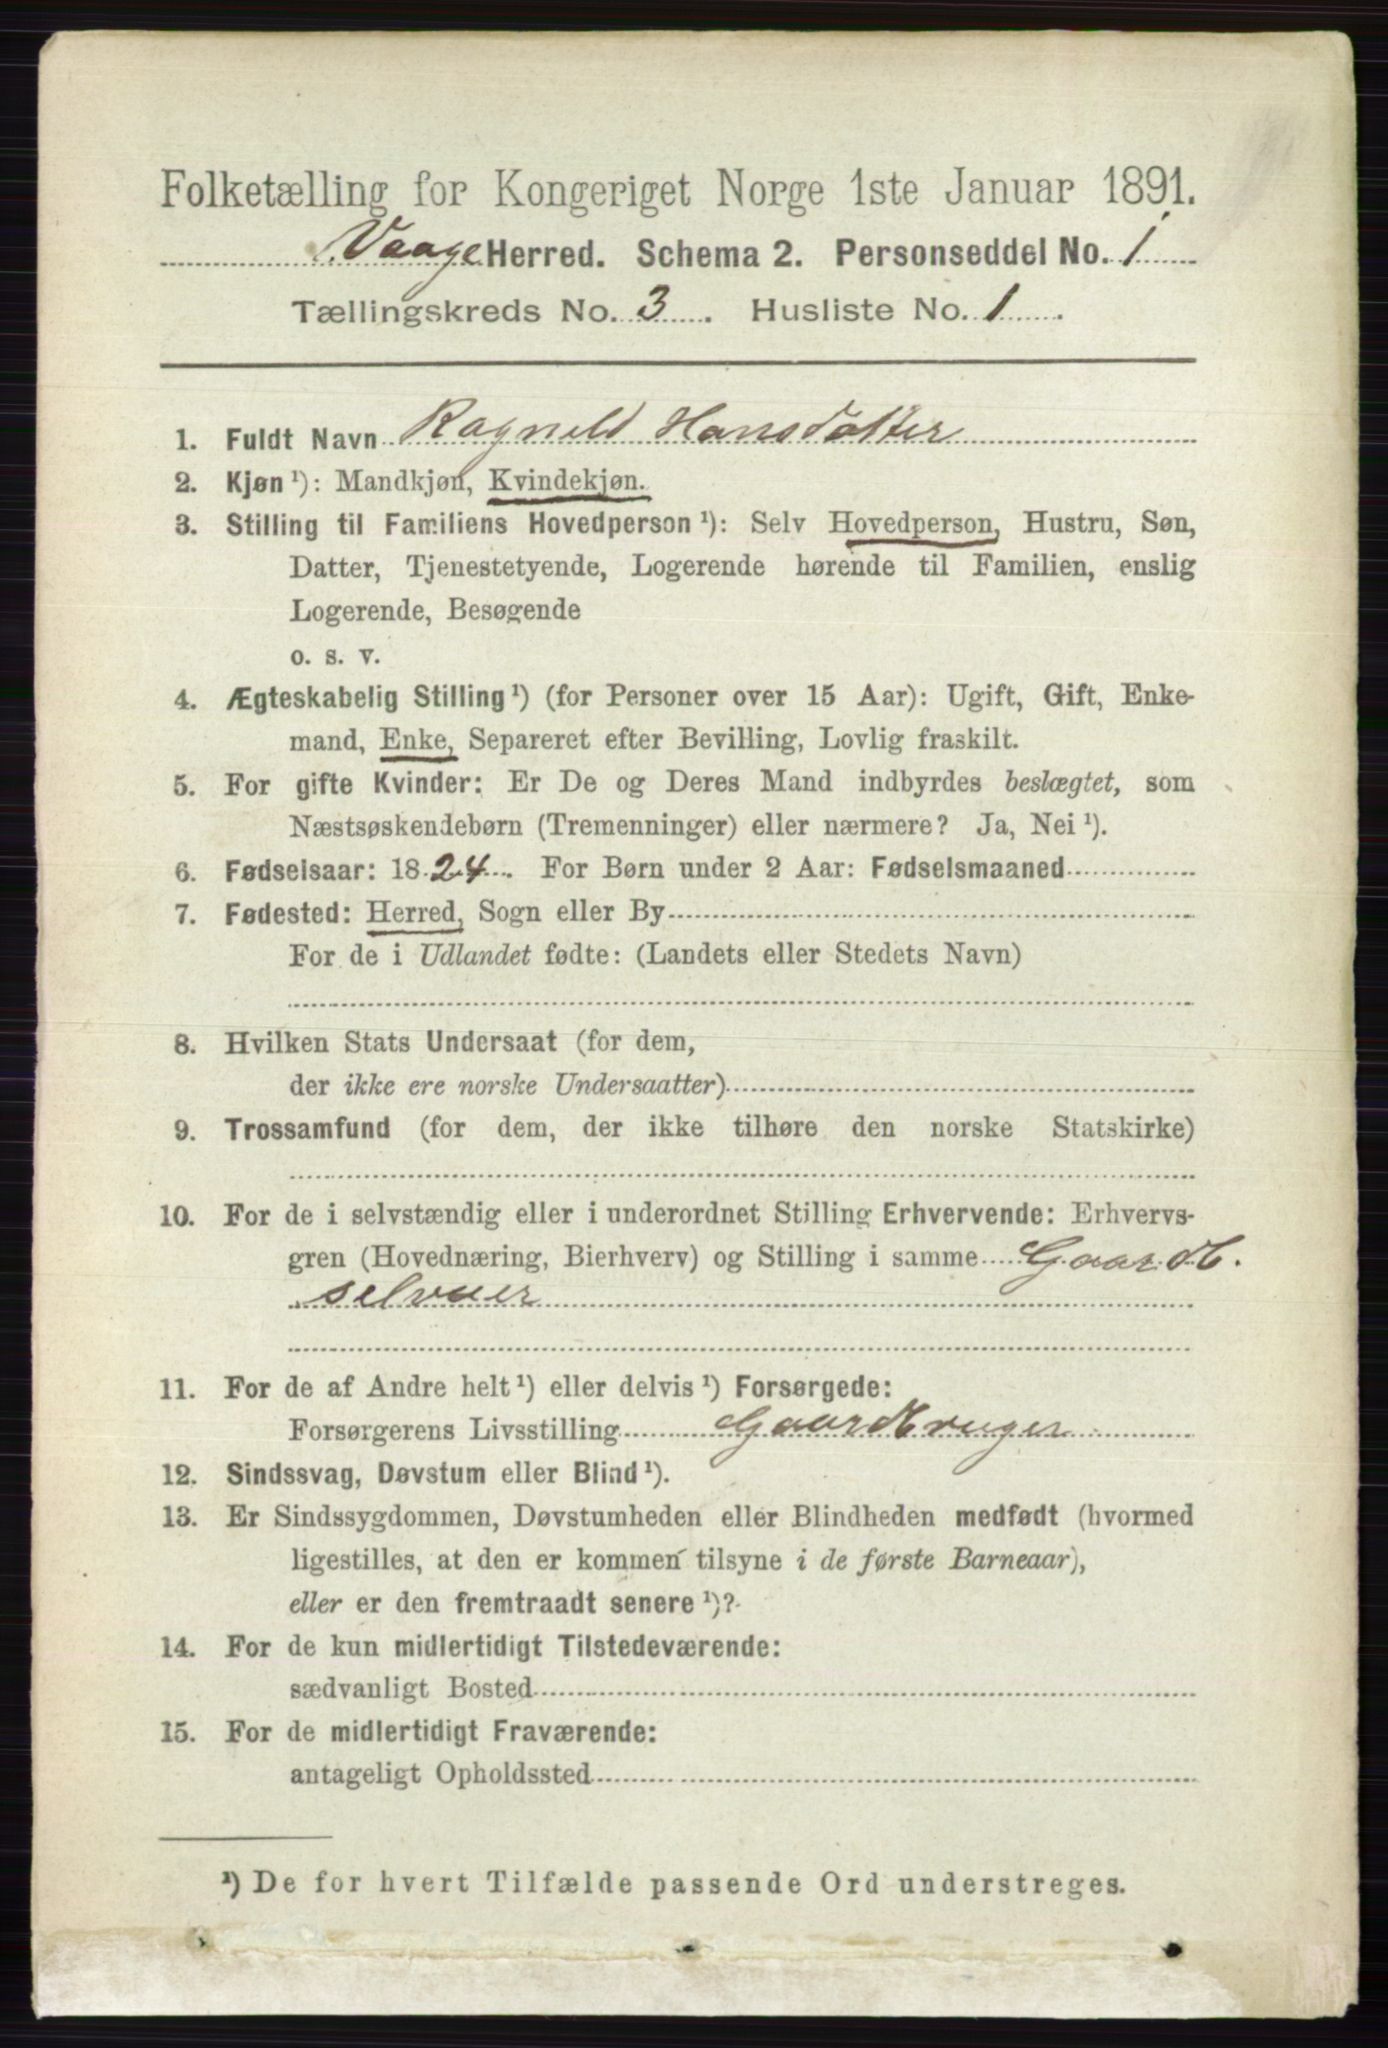 Folketælling for Kongeriget Norge 1ste Januar 1891.
Vaage Herred. Schema 2. Personseddel No. 1
Tællingskreds No. 3. Husliste No. 1.
1. Fuldt Navn Ragnild Hansdatter
2. Kjøn ¹): Mandkjøn, Kvindekjøn.
3. Stilling til Familiens Hovedperson ¹): Selv Hovedperson, Hustru, Søn,
Datter, Tjenestetyende, Logerende hørende til Familien, enslig
Logerende, Besøgende
o. s. v.
4. Ægteskabelig Stilling ¹) (for Personer over 15 Aar): Ugift, Gift, Enke-
mand, Enke, Separeret efter Bevilling, Lovlig fraskilt.
5. For gifte Kvinder: Er De og Deres Mand indbyrdes beslægtet, som
Næstsøskendebørn (Tremenninger) eller nærmere? Ja, Nei ¹).
6. Fødselsaar: 1824. For Børn under 2 Aar: Fødselsmaaned
7. Fødested: Herred, Sogn eller By
For de i Udlandet fødte: (Landets eller Stedets Navn)
8. Hvilken Stats Undersaat (for dem,
der ikke ere norske Undersaatter)
9. Trossamfund (for dem, der ikke tilhøre den norske Statskirke)
10. For de i selvstændig eller i underordnet Stilling Erhvervende: Erhvervs-
gren (Hovednæring, Bierhverv) og Stilling i samme Gaardb.
selveier
11. For de af Andre helt ¹) eller delvis ¹) Forsørgede:
Forsørgerens Livsstilling Gaardbruger
12. Sindssvag, Døvstum eller Blind ¹).
13. Er Sindssygdommen, Døvstumheden eller Blindheden medfødt (hvormed
ligestilles, at den er kommen tilsyne i de første Barneaar),
eller er den fremtraadt senere ¹)?
14. For de kun midlertidigt Tilstedeværende:
sædvanligt Bosted
15. For de midlertidigt Fraværende:
antageligt Opholdssted
¹) De for hvert Tilfælde passende Ord understreges.